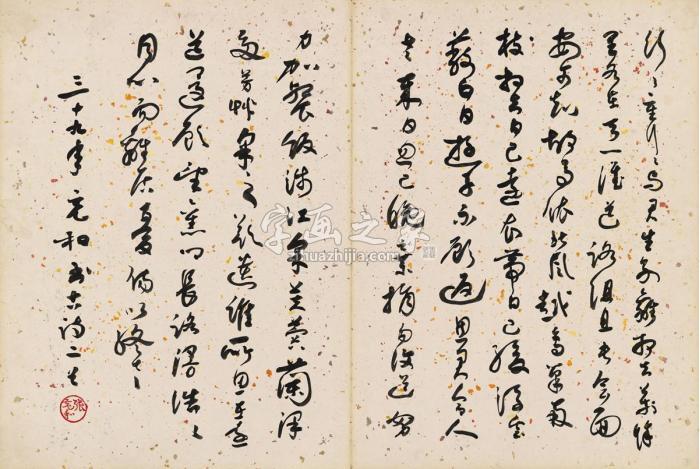 行〻重行〻與君生別離相去萬餘
里各在天一涯道路阻且長會面
安可知胡馬依北風越鳥巢南
枝相去日已遠衣帶日已緩浮雲
蔽白日遊子不顧返思君令人
老歲月忽已晚棄捐勿復道努
力加餐飯涉江采芙蓉蘭澤
多芳艸采之欲遺誰所思在遠
道還顧望舊鄉長路漫浩〻
同心而離居憂傷以終老
三十九年充和書古詩二首
張充和
字画之家
zihuazhijia.com